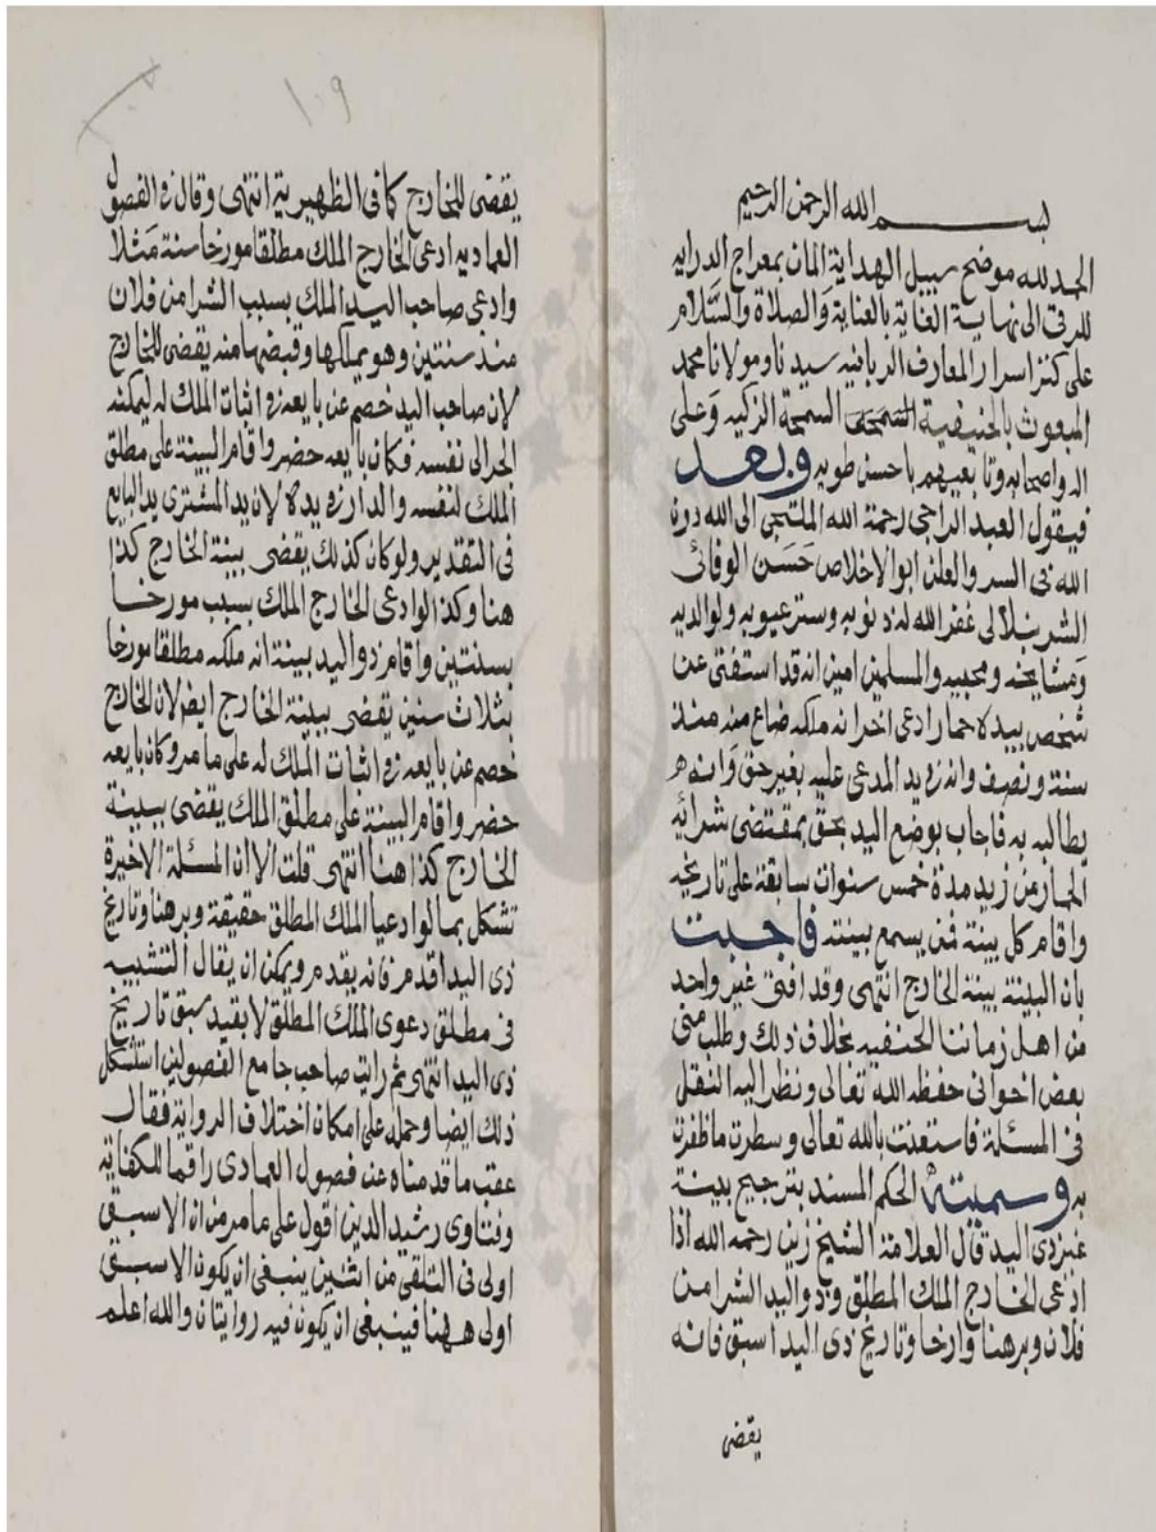 بسم الله الرحمن الرحيم
الحمد لله موضح سبيل الهداية المان بمعراج الدرايه
للرقى الى نهاية الغاية بالعناية والصلاة والسلام
على كنز اسرار المعارف الربانيه سيدنا ومولانا محمد
المبعوث بالحنيفية السمحة الزكيه وعلى
اله واصحابه وتابعيهم باحسن طويه وبعد
فيقول العبد الراجى رحمة الله الملتجى الى الله دون
الله فى السر والعلن ابو الاخلاص حسن الوفائى
الشرنبلالى غفر الله له ذنوبه وستر عيوبه ولوالديه
ومشايخه ومحبيه والمسلمين امين انه قد استفتى عن
شخص بيده حمار ادعى اخر انه ملكه ضاع منه منذ
سنة ونصف وانه فى يد المدعى عليه بغير حق وانه
يطالبه به فاجاب بوضع اليد بحق بمقتضى شرائه
الحمار من زيد مدة خمس سنوات سابقة على تاريخه
واقام كل بينة فمن يسمع بينته فاجبت
بان البينة بينة الخارج انتهى وقد افتى غير واحد
من اهل زماننا الحنفيه بخلاف ذلك وطلب منى
بعض اخوانى حفظه الله تعالى ونظر اليه النقل
فى المسئلة فاستعنت بالله تعالى وسطرت ما ظفرت
به وسميته الحكم المسند بترجيح بينة
غير ذى اليد قال العلامة الشيخ زين رحمه الله اذا
ادعى الخارج الملك المطلق وذو اليد الشرا من
فلان وبرهنا وارخا وتاريخ ذى اليد اسبق فانه
يقضى
١٠٩
يقضى للخارج كما فى الظهيرية انتهى وقال فى الفصول
العماديه ادعى الخارج الملك مطلقا مورخا سنة مثلا
وادعى صاحب اليد الملك بسبب الشرا من فلان
منذ سنتين وهو يملكها وقبضها منه يقضى للخارج
لان صاحب اليد خصم عن بايعه فى اثبات الملك له ليمكنه
الجر الى نفسه فكان بايعه حضر واقام البينة على مطلق
الملك لنفسه والدار فى يده لان يد المشترى يد البايع
فى التقدير ولو كان كذلك يقضى ببينة الخارج كذا
هنا وكذا لو ادعى الخارج الملك بسبب مورخا
بسنتين واقام ذو اليد بينة انه ملكه مطلقا مورخا
بثلاث سنين يقضى ببينة الخارج ايضا لان الخارج
خصم عن بايعه فى اثبات الملك له على ما مر وكان بايعه
حضر واقام البينة على مطلق الملك يقضى ببينة
الخارج كذا هنا انتهى قلت الا ان المسئلة الاخيرة
تشكل بما لو ادعيا الملك المطلق حقيقة وبرهنا وتاريخ
ذى اليد اقدم فانه يقدم ويمكن ان يقال التشبيه
فى مطلق دعوى الملك المطلق لا بقيد سبق تاريخ
ذى اليد انتهى ثم رايت صاحب جامع الفصولين استشكل
ذلك ايضا وحمله على امكان اختلاف الرواية فقال
عقب ما قدمناه عن فصول العمادى راقما للكفاية
وفتاوى رشيد الدين اقول على ما مر من ان الاسبق
اولى فى التلقى من اثنين ينبغى ان يكون الاسبق
اولى ههنا فينبغى ان يكون فيه روايتان والله اعلم